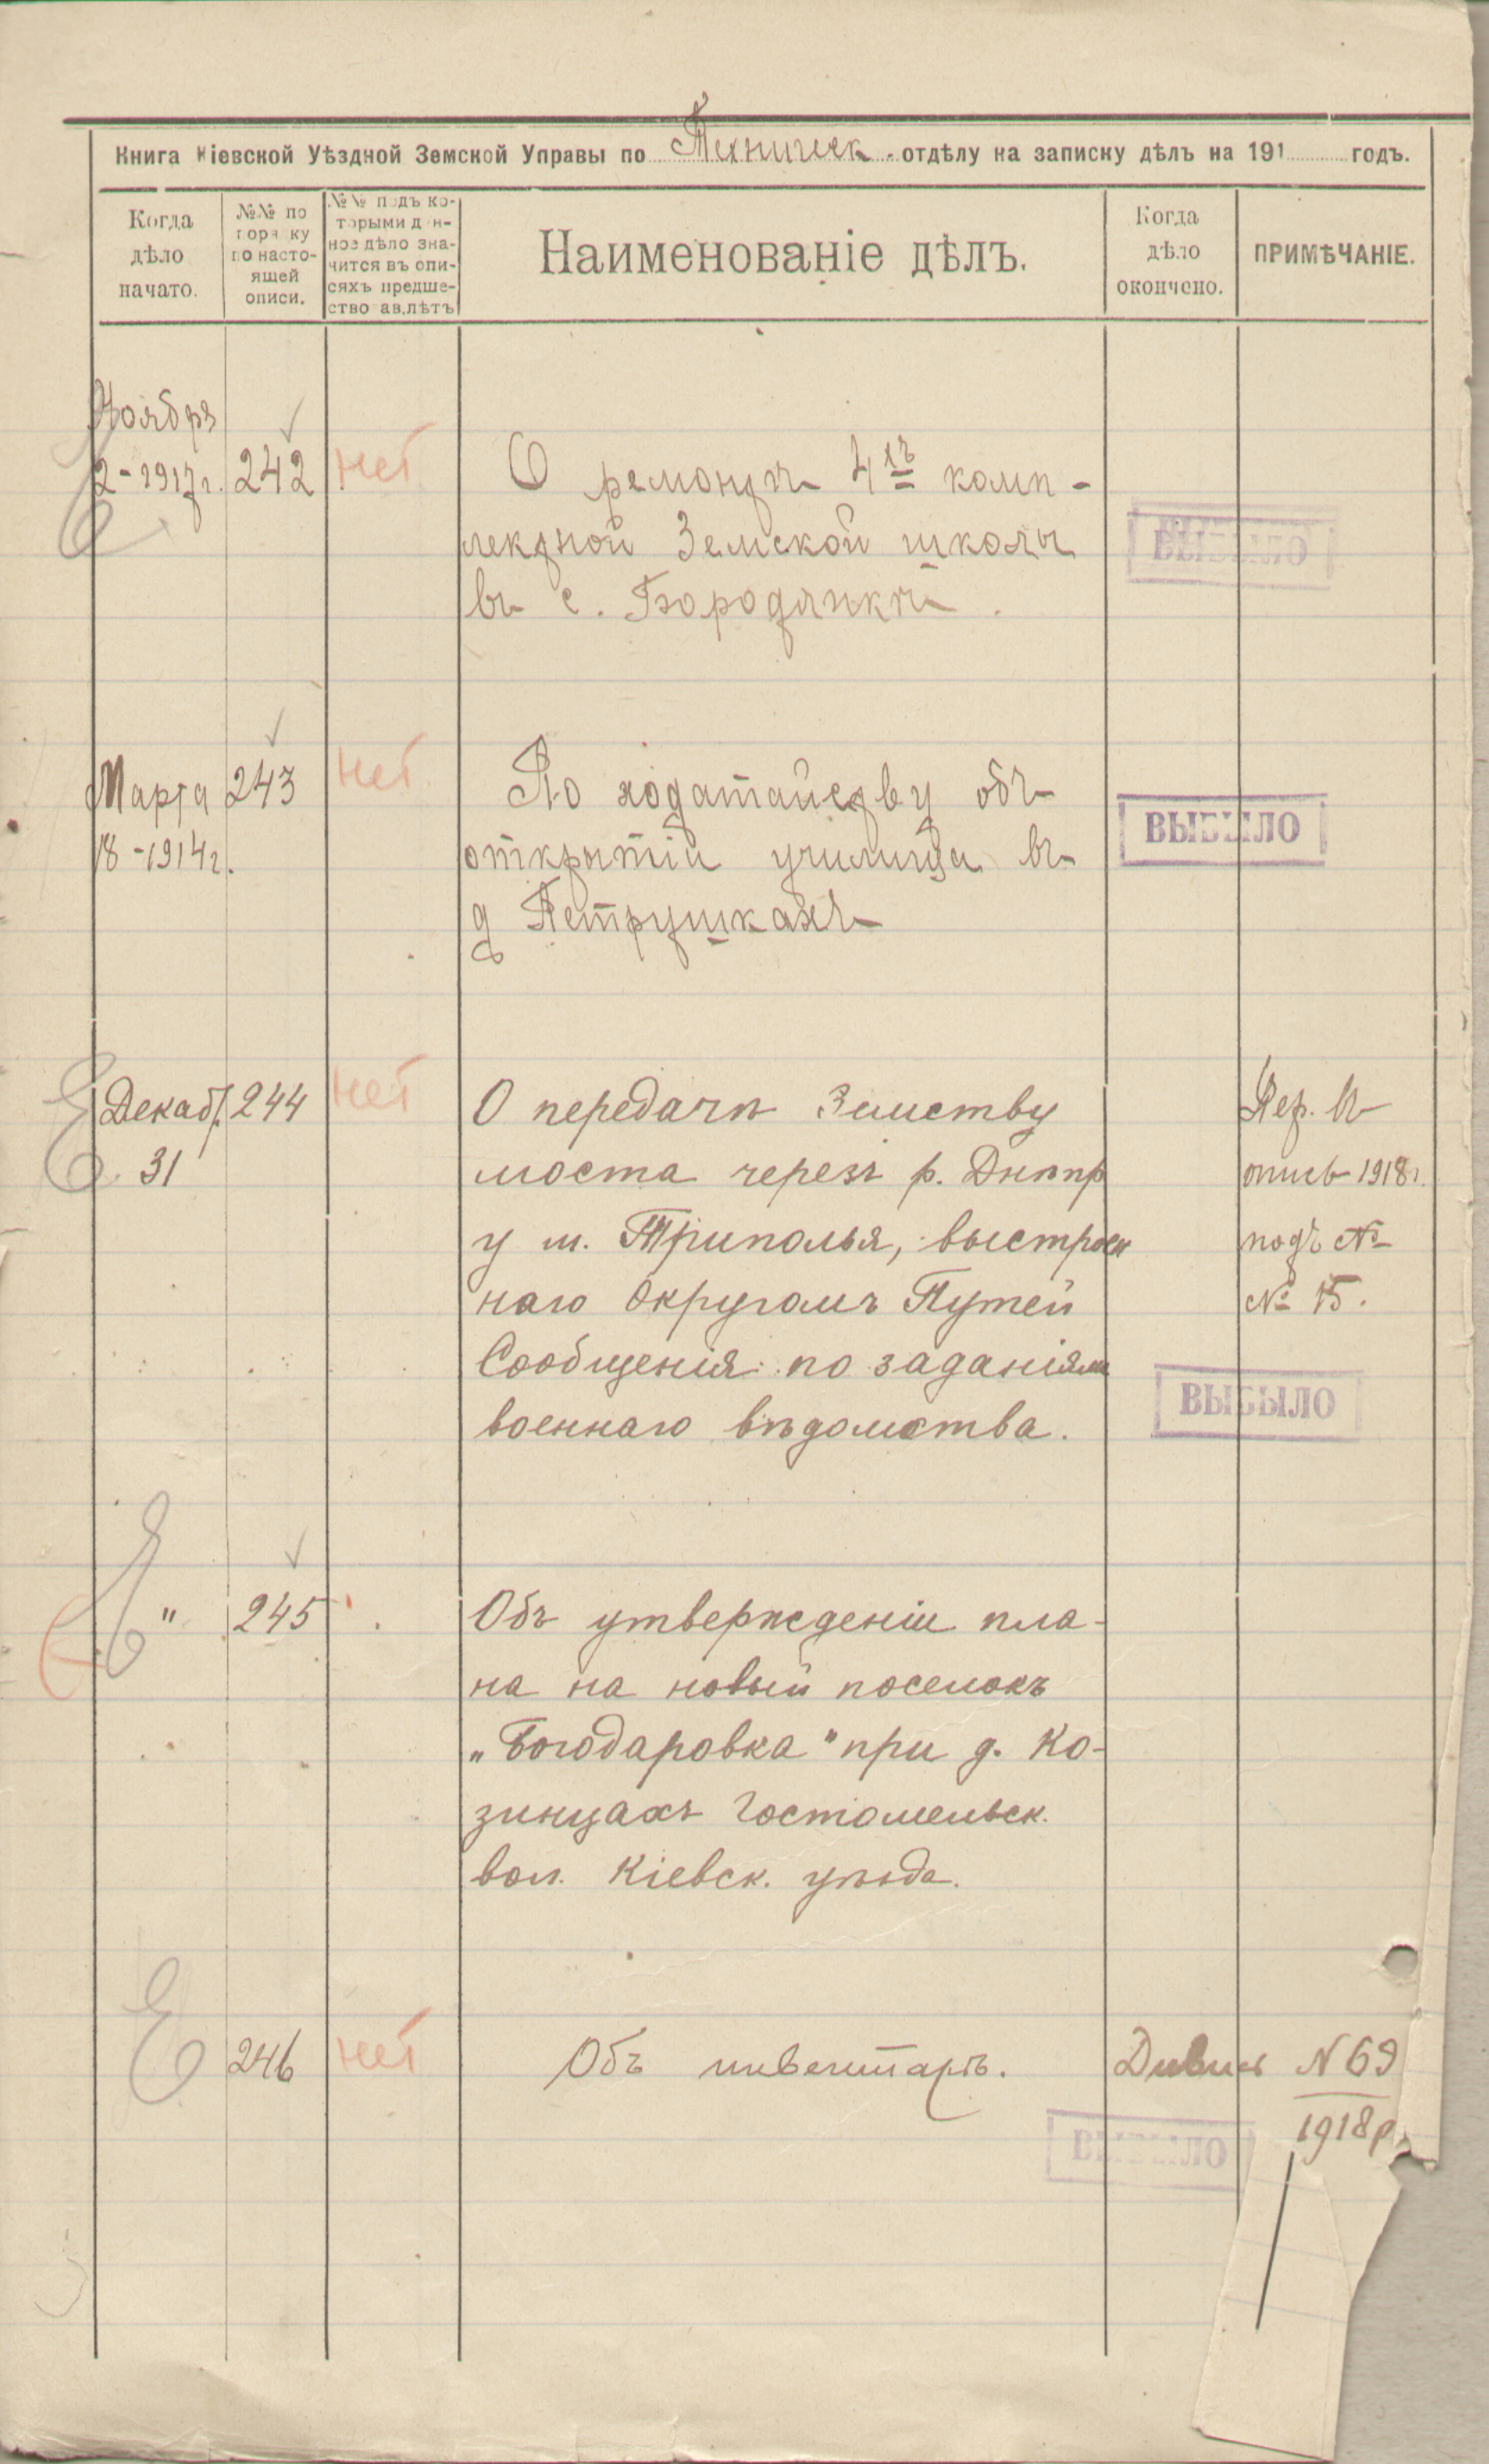 Книга Кіевской Уѣздной Земской Управы по Техническ. отдѣлу на записку дѣлъ на 191 годъ.
Когда
дѣло
начато.
№№ по
порядку
по насто-
ящей
описи.
№№ подъ ко-
торыми дан-
ное дѣло зна-
чится въ опи-
сяхъ предше-
ствовав.лѣтъ
Наименованіе дѣлъ.
Когда
дѣло
окончено.
ПРИМѢЧАНІЕ.
Ноября
2-1917г.
242
нет
О ремонтѣ 4хъ комп-
лектной Земской школы
въ с. Бородянкѣ.
ВЫБЫЛО
Марта
18-1914г.
243
нет
По ходатайству объ
открытіи училища въ
д Петрушкахъ
ВЫБЫЛО
Декаб.
31
244
нет
О передачѣ Земству
моста черезъ р. Днѣпр
у м. Триполья, выстроен
наго Округомъ Путей
Сообщенія по заданіям
военнаго вѣдомства.
Пер. въ
опись 1918г.
подъ №
№ 15.
ВЫБЫЛО
"
245
Объ утвержденіи пла-
на на новый поселокъ
„Богодаровка" при д. Ко-
зинцахъ Гостомельск.
вол. Кіевск. уѣзда.
246
нет
Объ инвентарѣ.
Дивись N 69
1918р.
ВЫБЫЛО